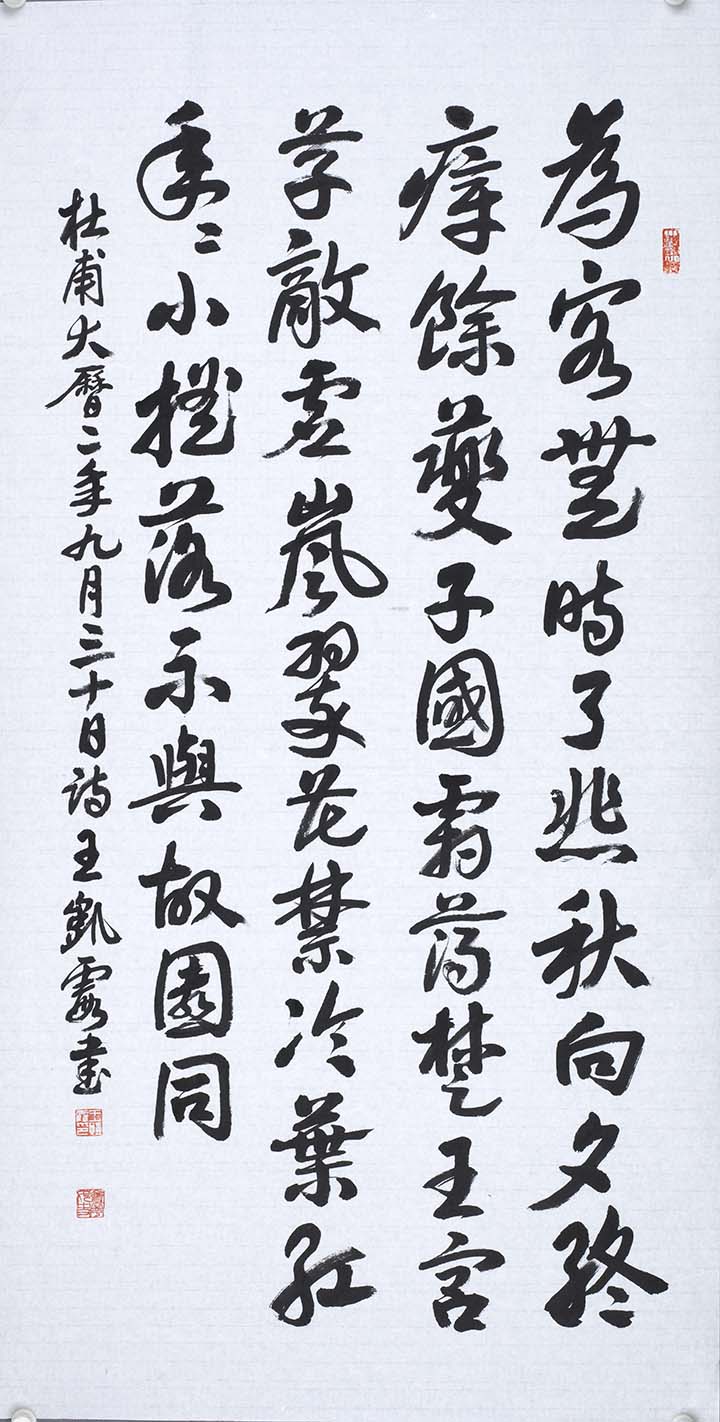 為客無時了悲秋向夕終
瘴餘夔子國霜薄楚王宮
草敵虛嵐翠花禁冷葉紅
年〻小摇落不與故園同
杜甫大曆二年九月三十日詩王凱霞書